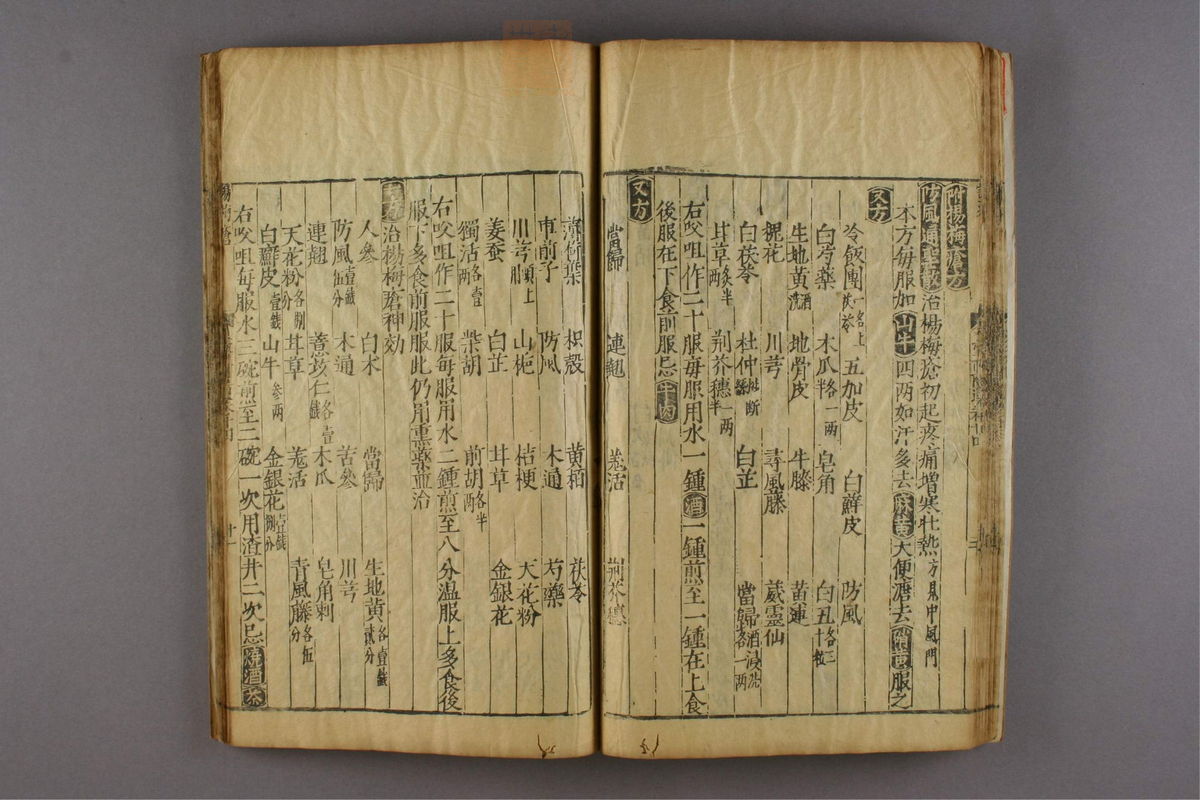 附楊梅瘡方
防風通聖散治楊梅瘡初起疼痛增寒壮熱方見中風門
本方每服加山牛四两如汗多去麻黄大便溏去硝黄服之
又方
冷飯團 五加皮 白蘚皮 防風
白芍藥 木瓜 皂角 白丑各三十粒
生地黄酒洗 地骨皮 牛膝 黄連
槐花 川芎 尋風藤 葳靈仙
白茯苓 杜仲 白芷 當歸酒浸洗各一两
甘草炙半两 荆芥穗一两半
右㕮咀作二十服每服用水一鍾酒一鍾煎至一鍾在上食
後服在下食前服忌牛肉
又方
當歸 連翹 羗活 荆芥穗
薄荷葉 枳殼 黄栢 茯苓
車前子 防風 木通 芍藥
川芎 山梔 桔梗 天花粉
姜蚕 白芷 甘草 金銀花
獨活各壹两 柴胡 前胡各半两
右㕮咀作二十服每服用水二鍾煎至八分温服上多食後
服下多食前服服此仍用熏藥並治
治楊梅瘡神効
人參 白术 當歸 生地黄各壹錢貳分
防風壹錢伍分 木通 苦參 川芎
連翹 薏苡仁各壹錢 木瓜 皂角刺
天花粉各捌分 甘草 羗活 青風藤各伍分
白蘚皮壹錢 山牛參两 金銀花壹錢捌分
右㕮咀每服水三碗煎至二碗一次用渣并二次忌燒酒茶